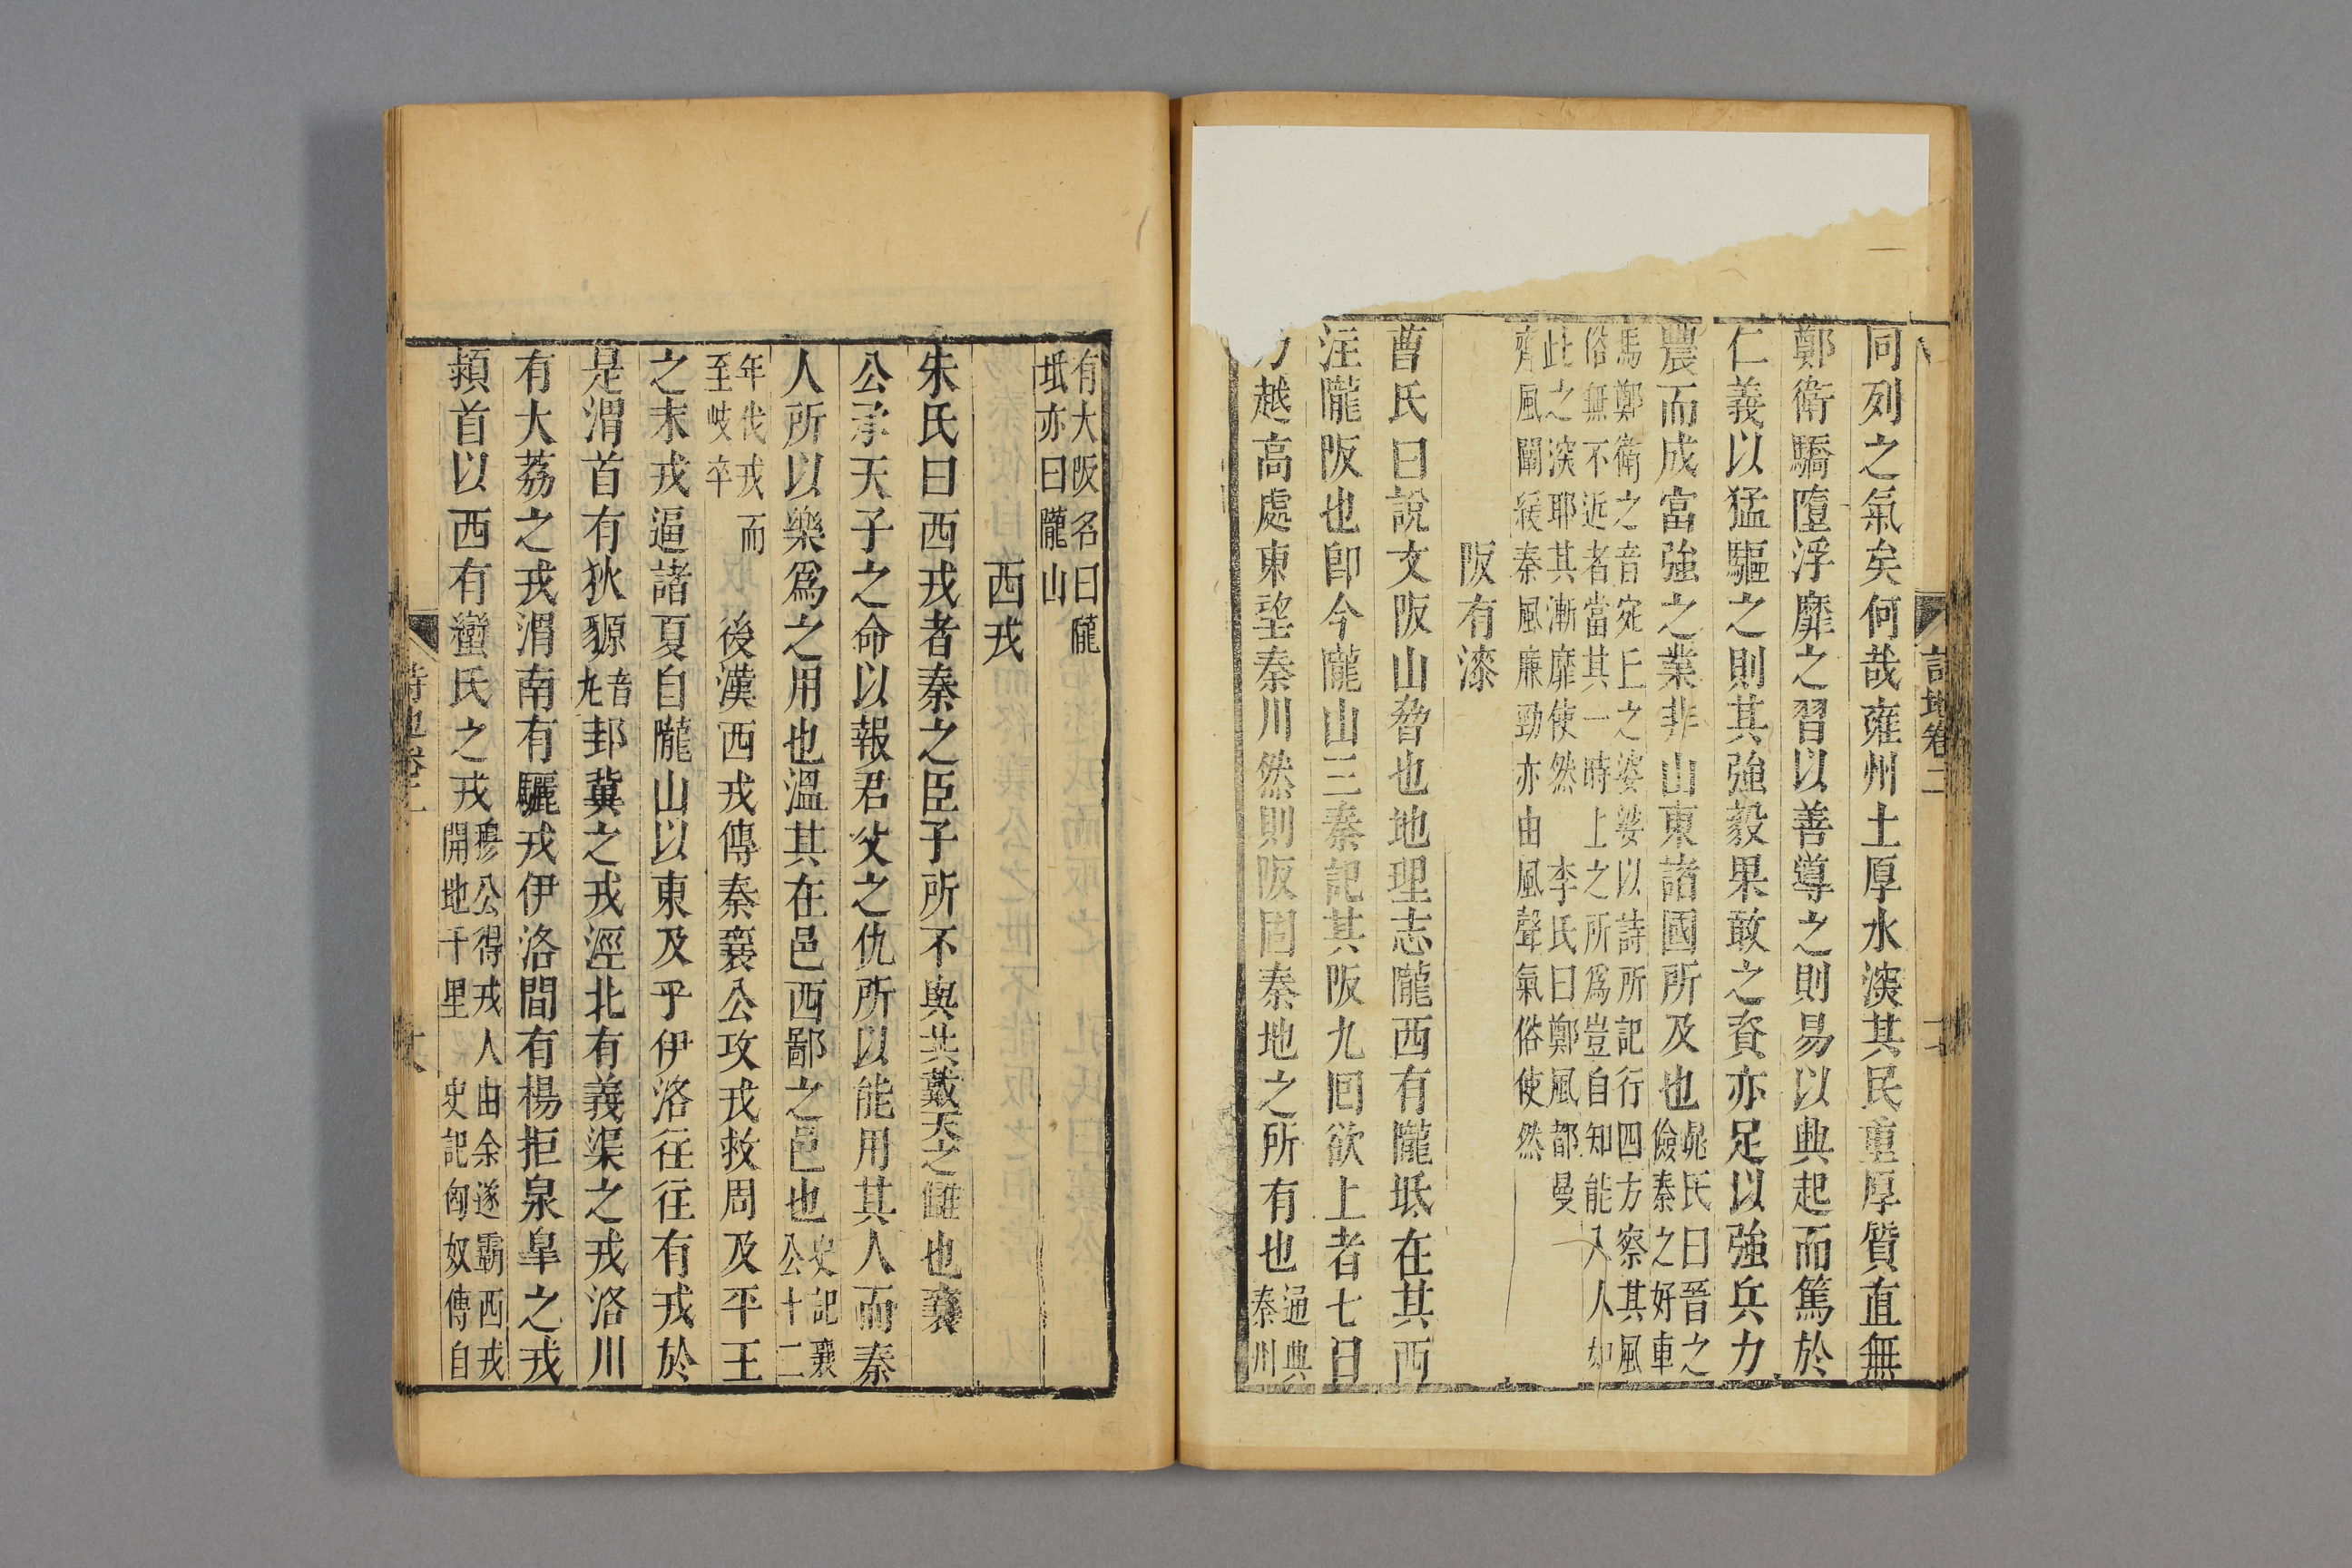 同列之氣矣何哉雍州土厚水深其民重厚質直無
鄭衛驕墮浮靡之習以善導之則易以興起而篤於
仁義以猛驅之則其強毅果敢之資亦足以強兵力
農而成富強之業非山東諸國所及也
晁氏曰晉之
儉秦之好車
馬鄭衛之音宛丘之婆娑以詩所記行四方察其風
俗無不近者當其一時上之所為豈自知能入人如
此之深耶其漸靡使然 李氏曰鄭風都曼
齊風闡緩秦風廉勁亦由風聲氣俗使然
阪有漆
曹氏曰說文阪山脅也地理志隴西有隴坻在其西
注隴阪也卽今隴山三秦記其阪九回欲上者七日
乃越高處東望秦川然則阪固秦地之所有也
通典
秦州
詩地卷二
有大阪名曰隴
坻亦曰隴山
西戎
朱氏曰西戎者秦之臣子所不與共戴天之讎也襄
公承天子之命以報君父之仇所以能用其人而秦
人所以樂爲之用也溫其在邑西鄙之邑也
史記襄
公十二
年伐戎而
至岐卒
後漢西戎傳秦襄公攻戎救周及平王
之末戎逼諸夏自隴山以東及乎伊洛往往有戎於
是渭首有狄豲
音
丸
邽冀之戎涇北有義渠之戎洛川
有大荔之戎渭南有驪戎伊洛間有楊拒泉皐之戎
潁首以西有蠻氏之戎
穆公得戎人由余遂霸西戎
開地千里 史記匈奴傳自
詩地卷二